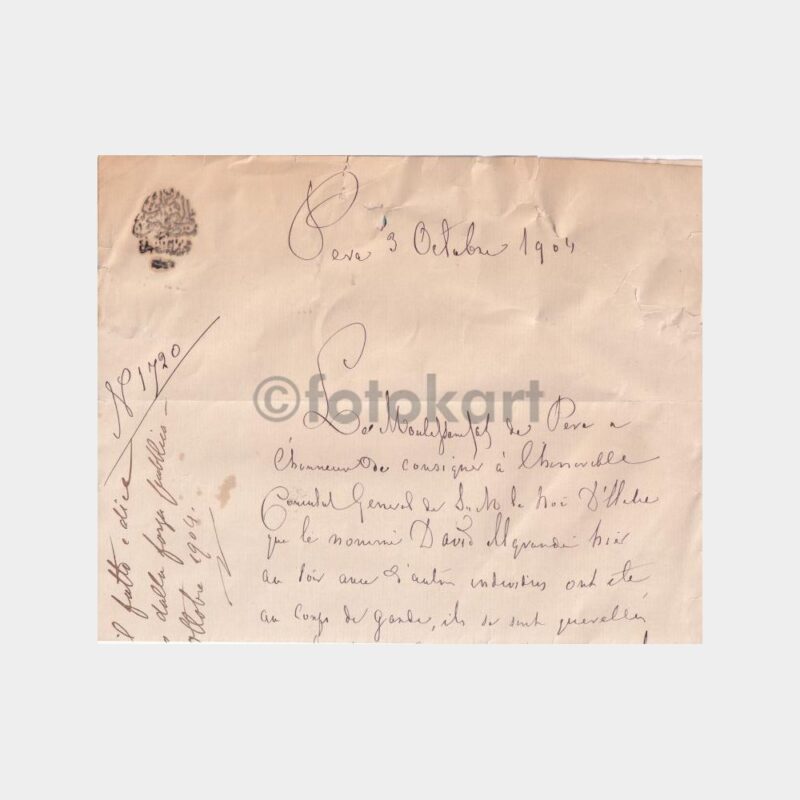 Pera 3 Octobre 1904
N° 1720
©fotokart
Le de Pera a
l'honneur de consigner à l'honorable
Consulat General de S. M. le Roi D'Italie
que le nommé David hier
au soir avec d'autres individus ont été
au Corps de garde, ils se sont querellés
il fatto e dice
dalla forza pubblica –
ottobre 1904.